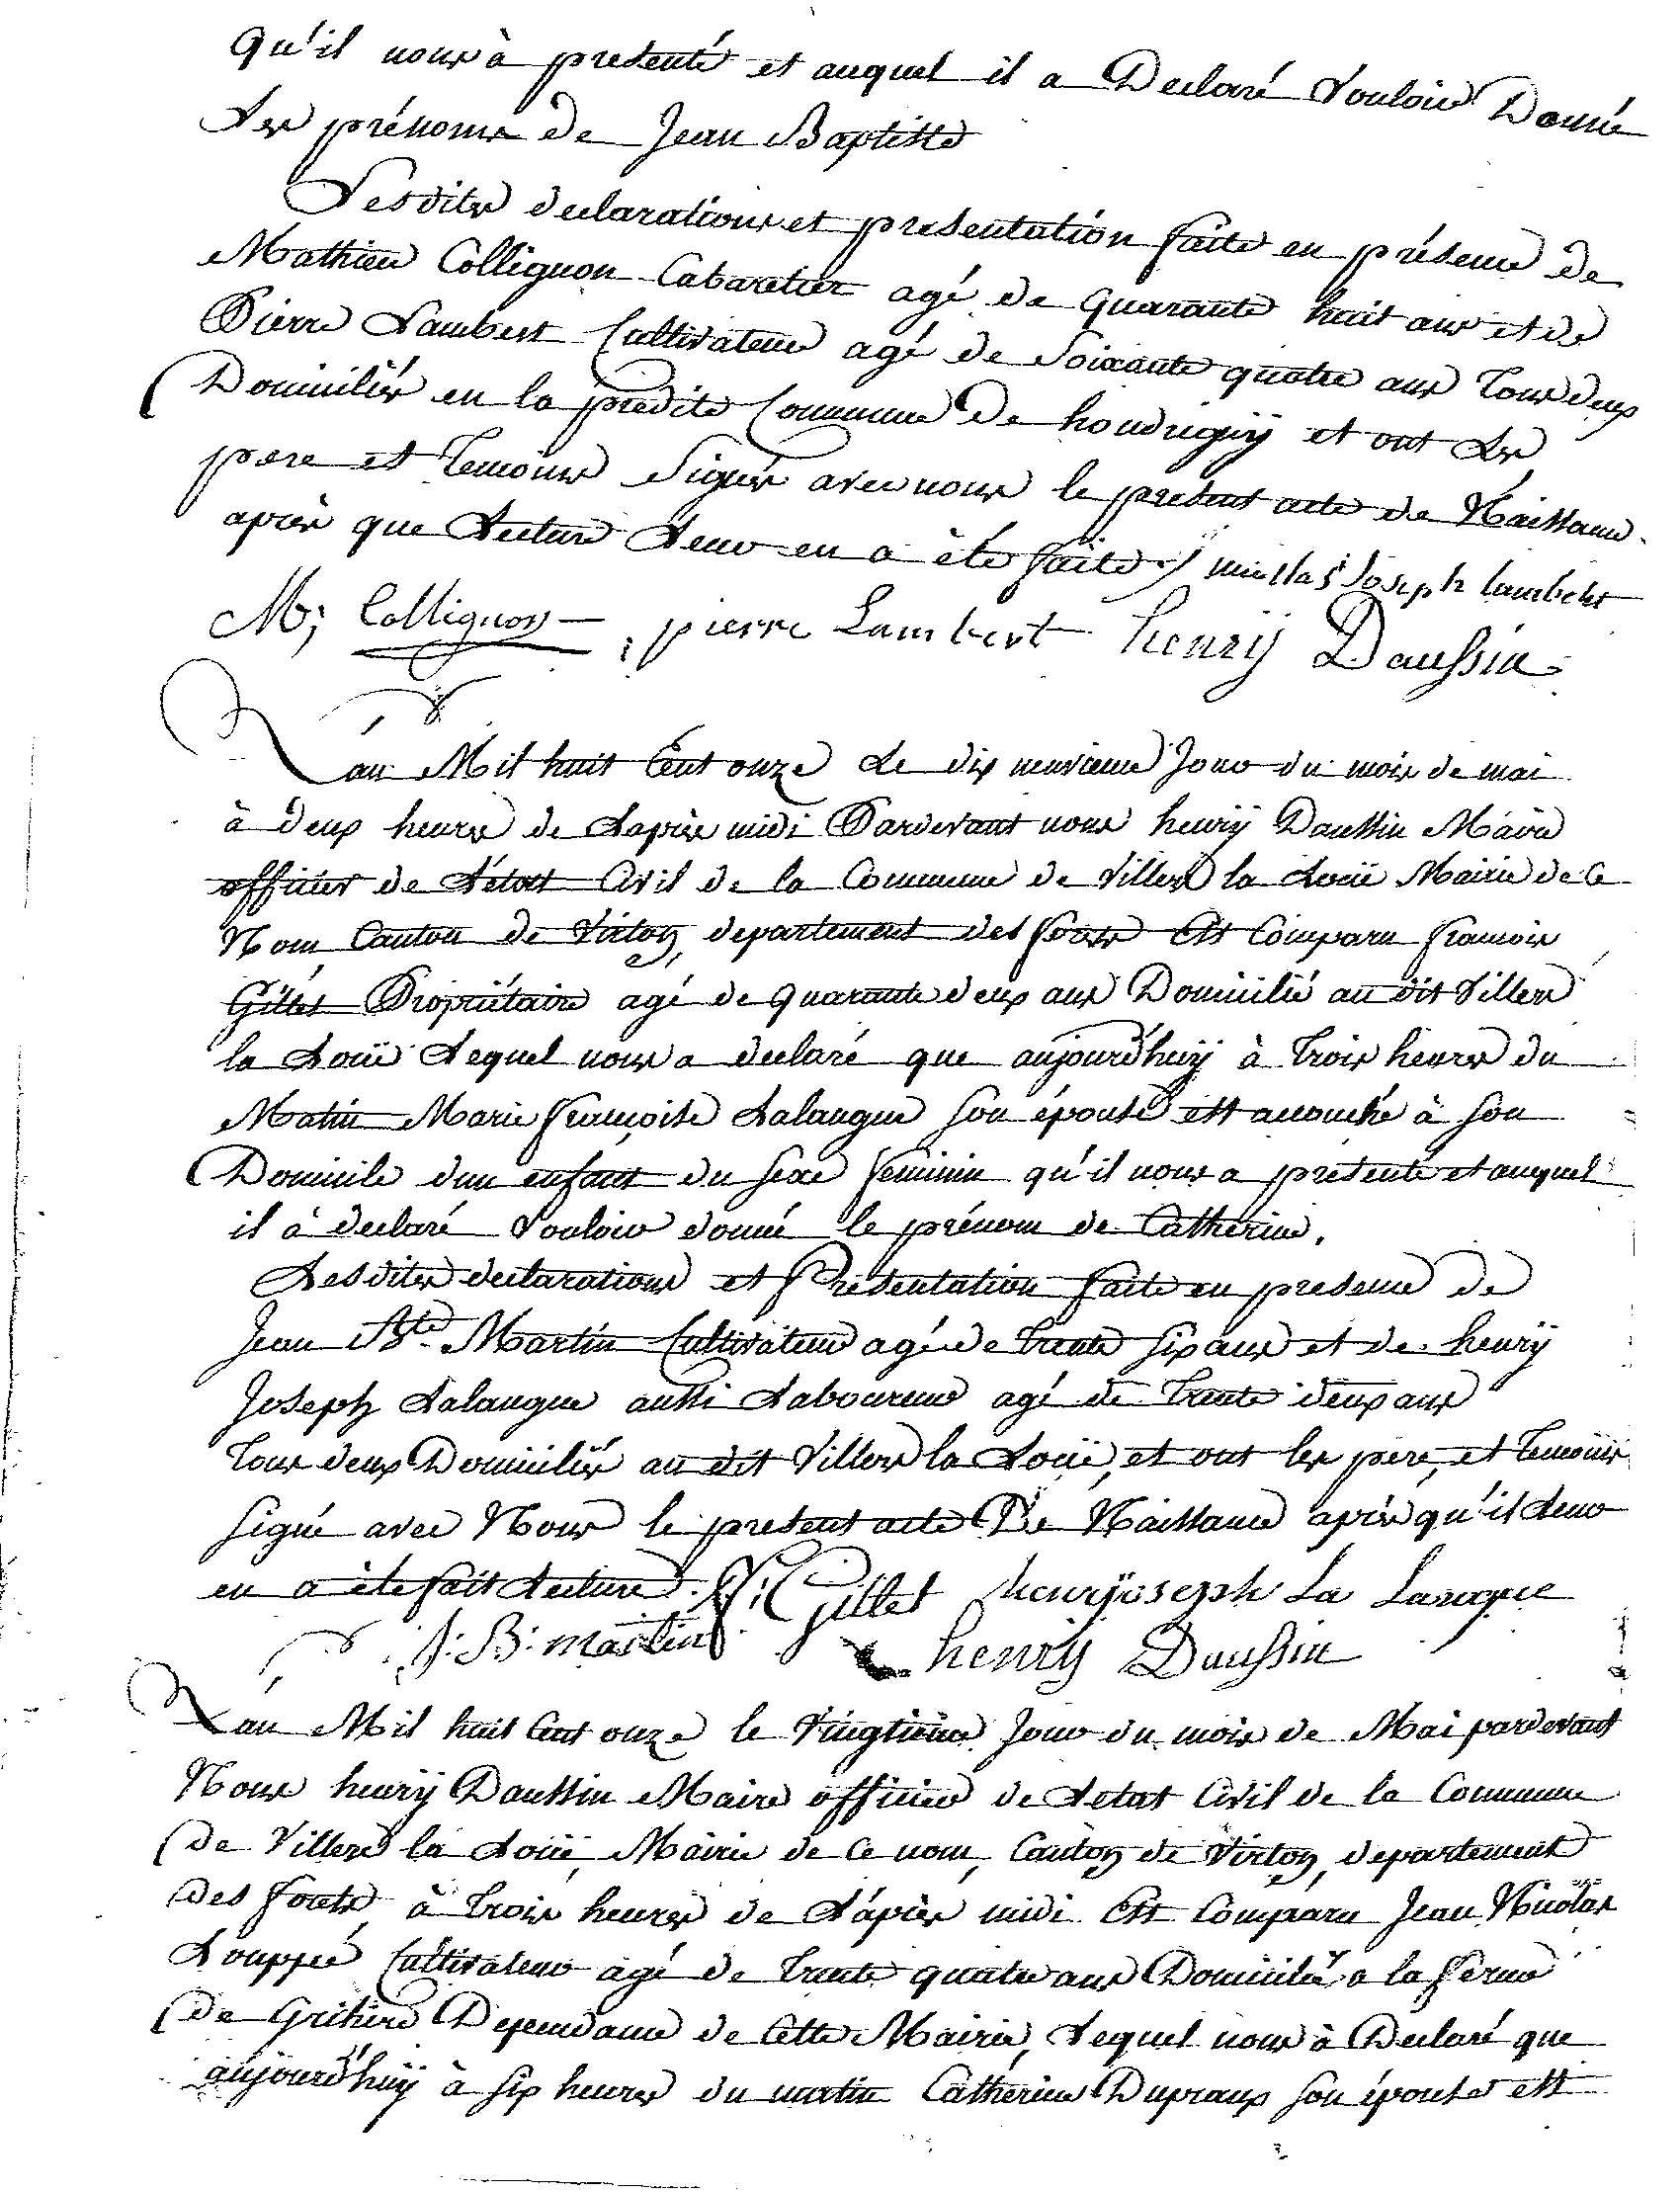 Qu'il nous à presenté et auquel il a Declaré Vouloir Donné
Les prénoms de Jean Baptiste
Lesdites declarations et presentation faite en présence de
Mathieu Collignon Cabaretier agé de quarante huit ans et de
Pierre Lambert Cultivateur agé de Soixante quatre ans Tous deux
Domiciliés en la prédite Commune De houdrigny et ont Les
pere et Temoins Signés avec nous le present acte de Naissance
après que Lecture Leur en a été faite / Joseph lambert
M; Collignon pierre Lambert henrÿ Daussin
L'an Mil huit Cent onze Le dix neuvieme Jour du mois de mai
à deux heures de Lapres midi Pardevant nous henrÿ Daussin Maire
officier de L'état Civil de la Commune de Villers la Louë Mairie de Ce
Nom Canton de Virton, departement des forets Est Comparu francois
Gillet Propriétaire agé de quarante deux ans Domicilié au dit Villers
la Louë Lequel nous a declaré que aujourd'huÿ à Trois heures du
Matin Marie françoise Lalangue Son épouse est accouché à Son
Domicile d'un enfant du Sexe feminin qu'il nous a presenté et auquel
il à declaré Vouloir donné le prénom de Catherine.
Lesdites declarations et Presentation faite en presence de
Jean Bte Martin Cultivateur agé de Trente Six ans et de henrÿ
Joseph Lalangue aussi Laboureur agé de Trente deux ans
Tous deux Domiciliés au dit Villers la Louë, et ont les pere, et Temoins
Signé avec Nous le present acte De Naissance après qu'il Leur
en a été fait Lecture. F: Gillet henrÿ joseph La Langue
J: B: martin henrÿ Daussin
L'an Mil huit Cent onze le Vingtieme Jour du mois de Mai pardevant
Nous henrÿ Daussin Maire officier de Letat Civil de la Commune
de Villers la Louë, Mairie de Ce nom, Canton de Virton, departement
des forets à Trois heures de L'après midi Est Comparu Jean Nicolas
Louppé Cultivateur agé de Trente quatre ans Domicilié a la ferme
de Dependance de Cette Mairie, Lequel nous à Declaré que
aujourd'huÿ à Six heures du matin Catherine Dupraux Son épouse est